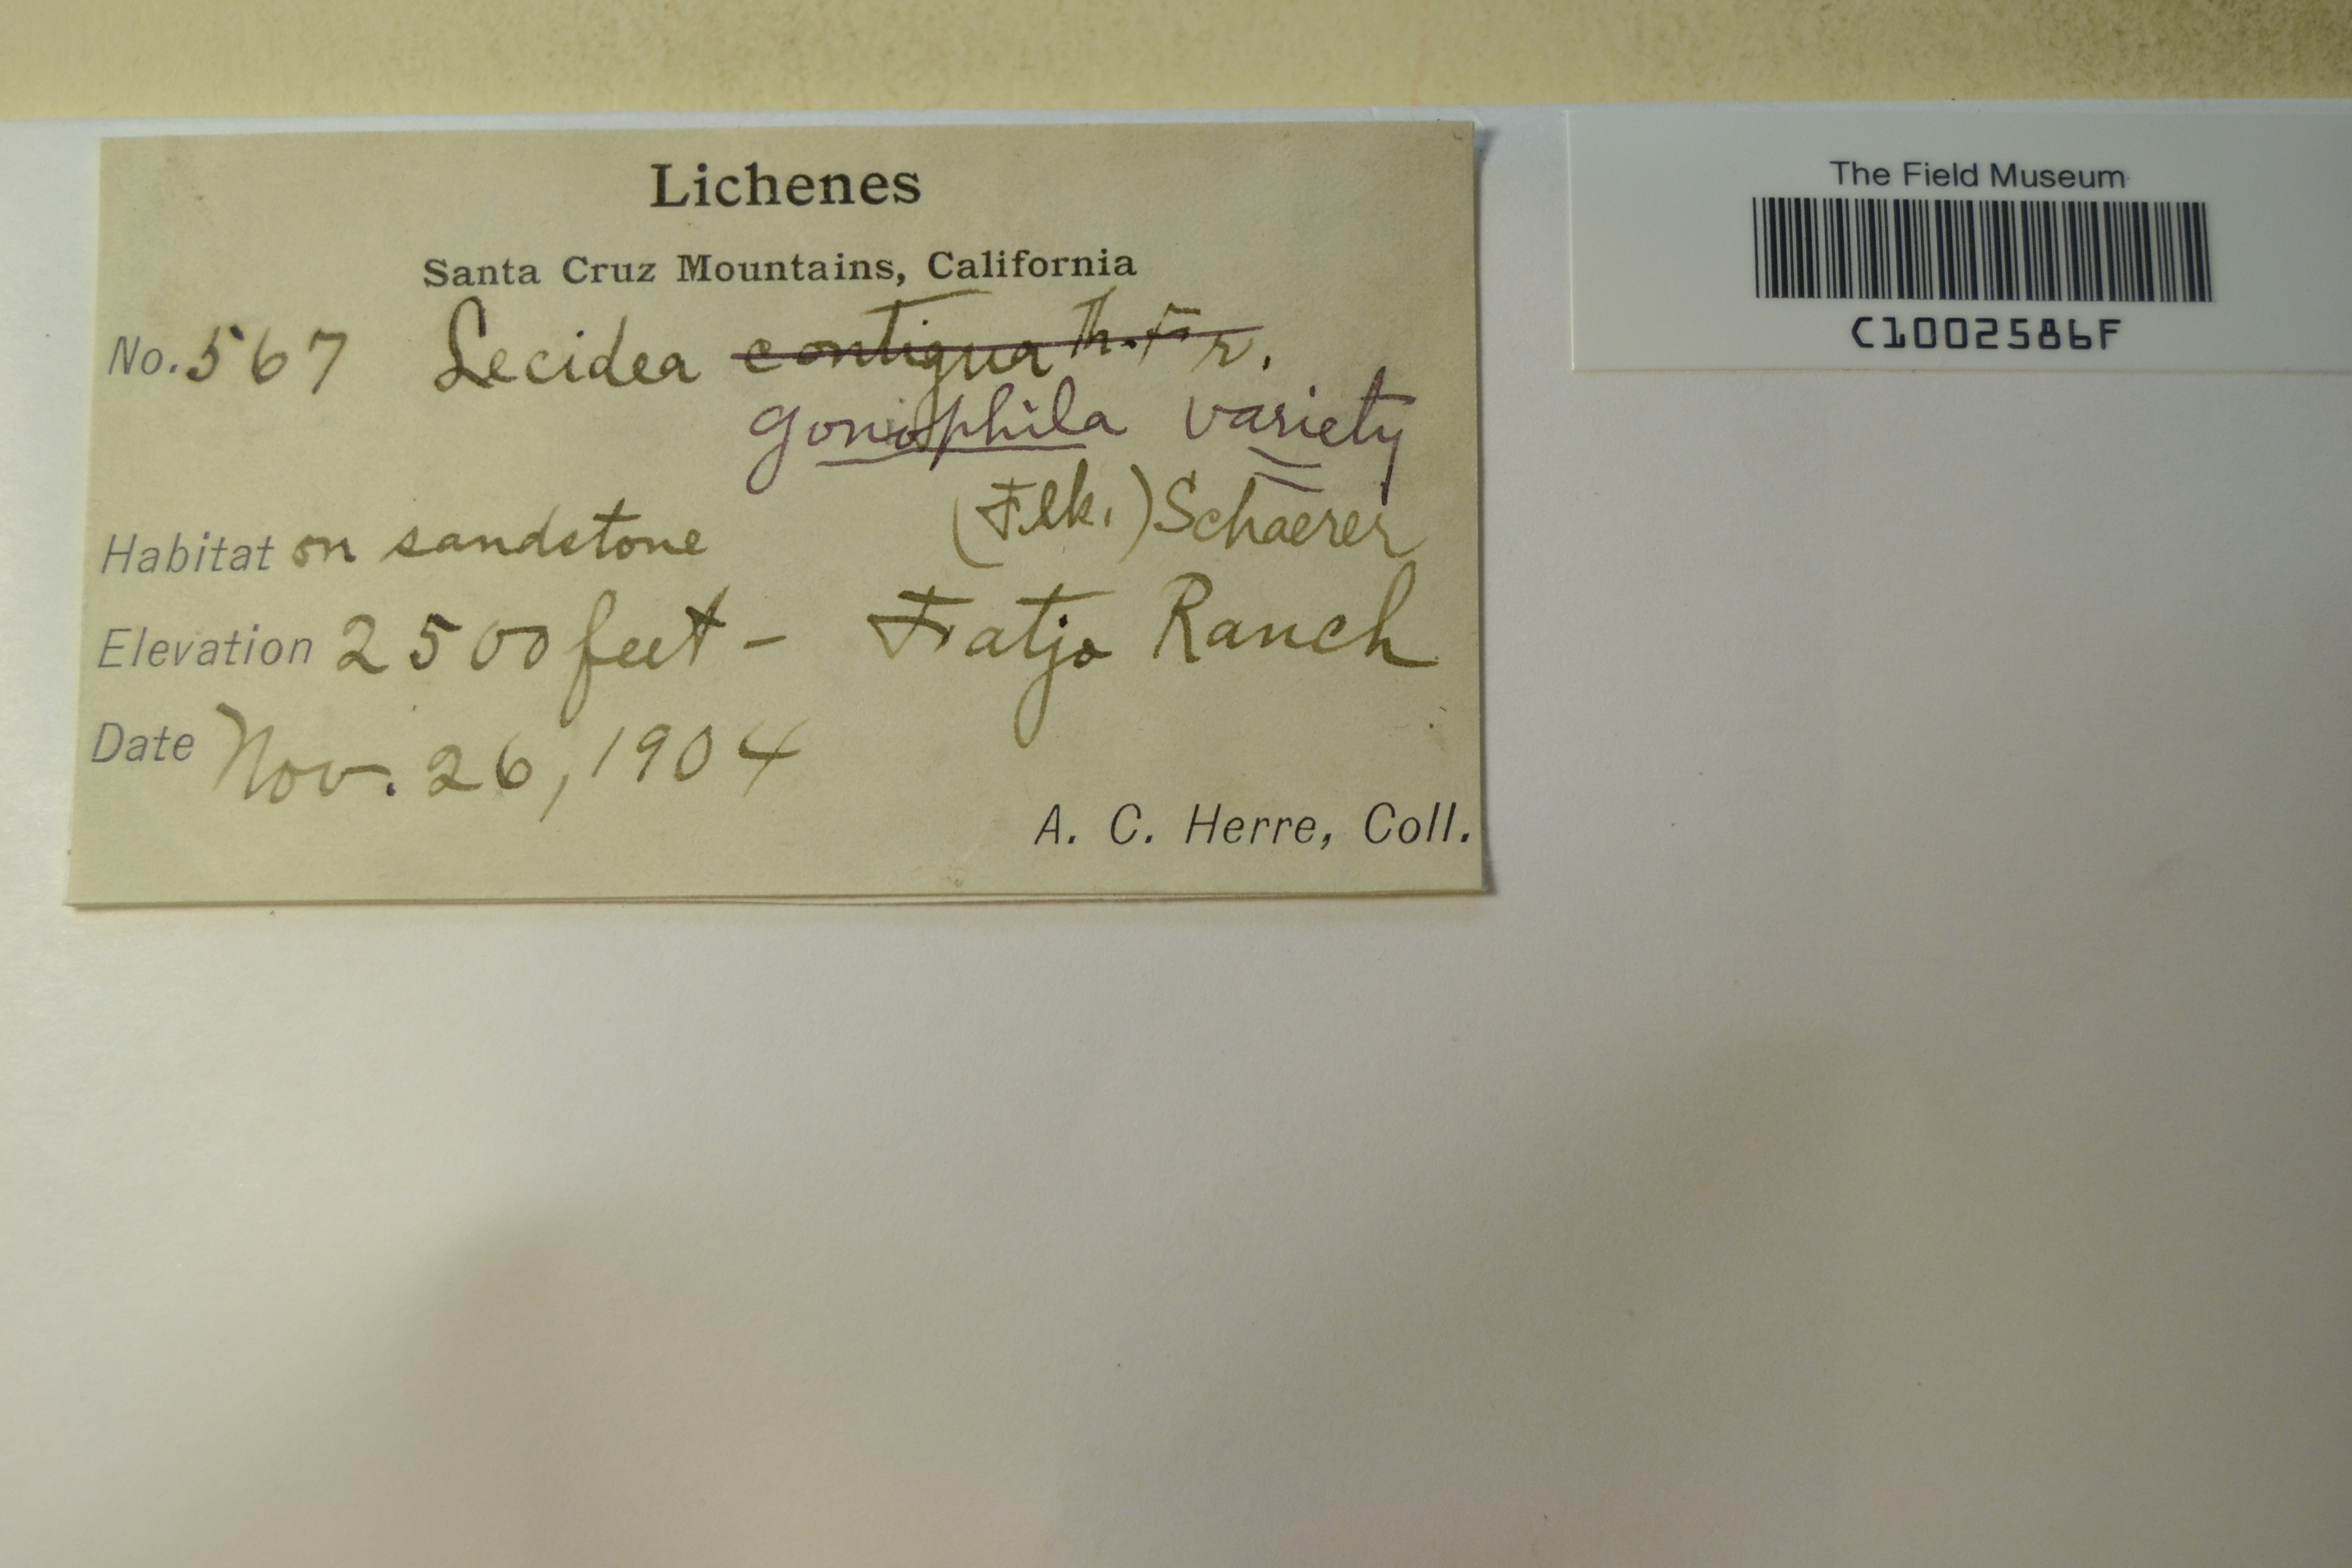 Lichenes
Santa Cruz Mountains, California
No. 567 Lecidea contigua Th. Fr.
goniophila variety
(Flk.) Schaerer
Habitat on sandstone
Elevation 2500 feet - Fatjo Ranch
Date Nov. 26, 1904
A. C. Herre, Coll.
The Field Museum
C1002586F